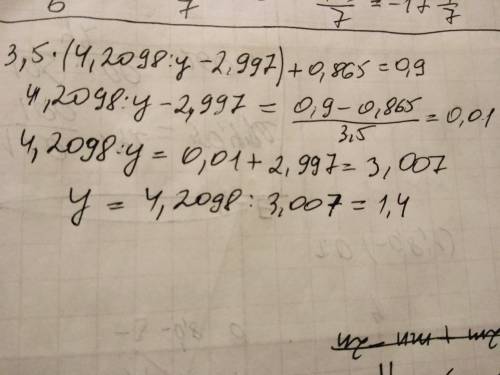 6 7 7 = -17 7
3,5·(4,2098:y-2,997)+0,865=0,9
4,2098:y-2,997 = (0,9-0,865)/3,5 = 0,01
4,2098:y = 0,01+2,997 = 3,007
y = 4,2098 : 3,007 = 1,4